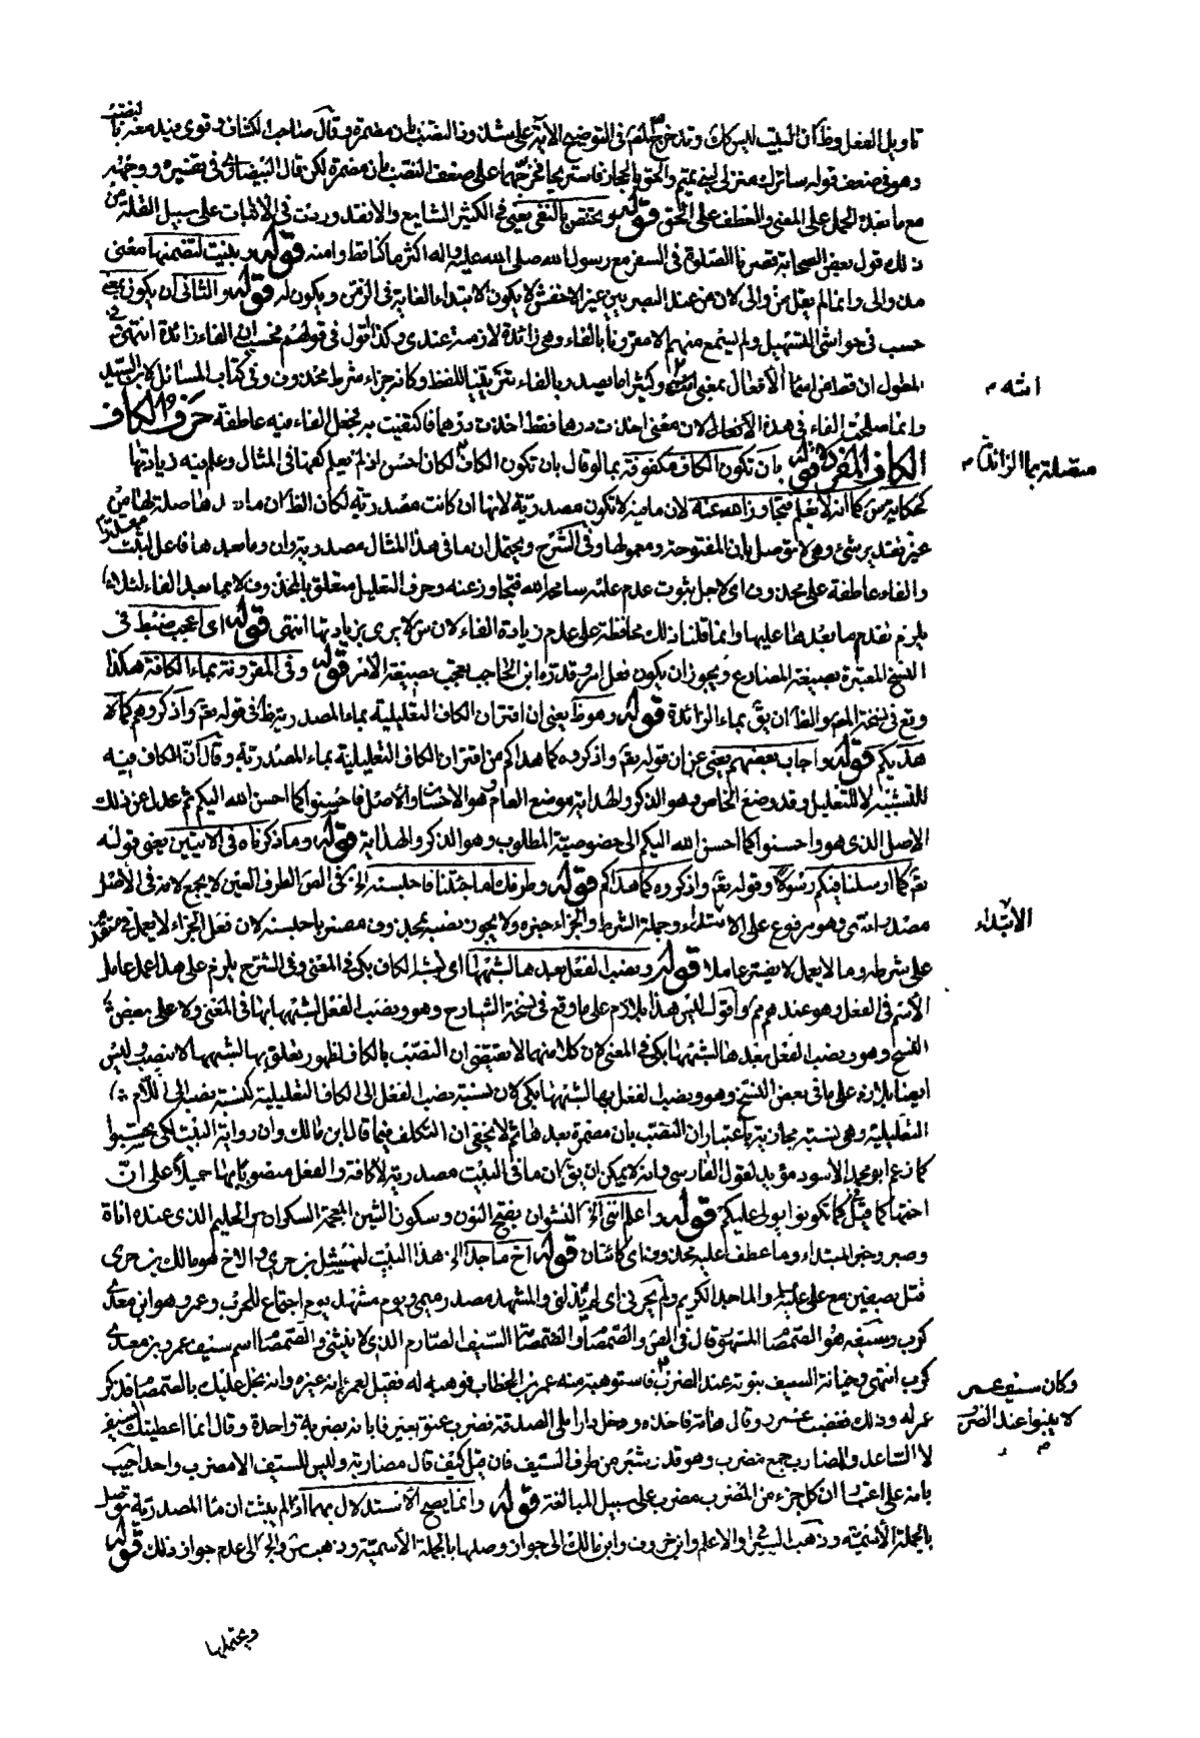 تاويل الفعل وظ ان البيت ليس كذلك وقد خرج في التوضيح الآية على شذوذ النصب بان مضمرة وقال صاحب الكشاف وقرئ فيدمغه بالنصب
وهو في ضعف قوله ساترك منزلي لبني تميم والحق بالحجاز فاستريحا فخرجها على ضعف النصب بان مضمرة لكن قال البيضاوي في تفسيره ووجهه
مع بعده الحمل على المعنى والعطف على الحق قوله ويختص بالنفي يعني في الكثير الشايع والا فقد وردت في الاثبات على سبيل القلة من
ذلك قول بعض الصحابة قصرنا الصلوة في السفر مع رسول الله صلى الله عليه واله اكثر ما كنا قط وامنه قوله وبنيت لتضمنها معنى
مذ والى وانما لم يقل من والى لان من عند البصريين غير الاخفش لا يكون لابتداء الغاية في الزمن ويكون له قوله والثاني ان يكون بمعنى
حسب في حواشي التسهيل ولم يسمع منهم الا مقرونا بالفاء وهي زائدة لازمة عندي وكذا اقول في قولهم فحسب ان الفاء زائدة انتهى وفي
المطول ان قط من اسماء الافعال بمعنى انته وكثيرا ما يصدر بالفاء تزيينا للفظ وكانه جزاء شرط محذوف وفي كتاب المسائل لابن السيد
انته
وانما صلحت الفاء في هذه الافعال لان معنى اخذت درهما فقط اخذت درهما فاكتفيت به بجعل الفاء فيه عاطفة حرف الكاف
الكاف المفردة قوله بان تكون الكاف مكفوفة بما لو قال بان تكون الكاف لكان احسن اذ لم يعلم كفها في المثال وعلم فيه زيادتها
متصلة بما الزائدة
كحكاية س كما انه لا يعلم فتجاوز الله عنه لان ما فيه لا تكون مصدرية لانها ان كانت مصدرية لكان الظ ان ما صلة لها من
غير تقدير شئ وهي لا توصل بان المفتوحة ومعمولها وفي الشرح ويحتمل ان ما في هذا المثال مصدرية وان وما بعدها فاعل لثبت مقدرا
والفاء عاطفة على محذوف اي لاجل ثبوت عدم علمه سامحه الله فتجاوز عنه وحرف التعليل متعلق بالمحذوف لا بما بعد الفاء لئلا
يلزم تقدم ما بعدها عليها وانما قلنا ذلك محافظة على عدم زيادة الفاء لان س لا يرى بزيادتها انتهى قوله اي اعجب ضبط في
النسخ المعتبرة بصيغة المضارع ويجوز ان يكون فعل امر وقدره ابن الحاجب بعجب بصيغة الامر قوله وفي المقرونة بماء الكافة هكذا
وقع في نسخة المص والظ ان يق بماء الزائدة قوله وهو ظ يعني ان اقتران الكاف التعليلية بماء المصدرية ظ في قوله تعم واذكروه كما
هديكم قوله واجاب بعضهم يعني عن ان قوله تعم واذكروه كما هداكم من اقتران الكاف التعليلية بماء المصدرية وقال ان الكاف فيه
للتشبيه لا للتعليل وقد وضع الخاص وهو الذكر والهداية موضع العام وهو الاحسان والاصل فاحسنوا كما احسن الله اليكم ثم عدل عن ذلك
الاصل الذي هو واحسنوا كما احسن الله اليكم الى خصوصية المطلوب وهو الذكر والهداية قوله وما ذكرناه في الايتين يعني قوله
تعم كما ارسلنا فيكم رسولا وقوله تعم واذكروه كما هداكم قوله وطرفك اما جئتنا فاحبسنه الخ في الص الطرف العين لا يجمع لانه في الاصل
مصدر انتهى وهو مرفوع على الابتداء وجملة الشرط والجزاء خبره ولا يجوز نصبه بمحذوف مفسر باحبسنه لان فعل الجزاء لا يعمل في متقدم
الابتداء
على شرطه وما لا يعمل لا يفسر عاملا قوله ونصب الفعل بعدها لشبهها اي لشبه الكاف بكي في المعنى وفي الشرح يلزم على هذا عمل عامل
الاسم في الفعل وهو عندهم مم واقول ليس هذا بلازم على ما وقع في نسخة الشارح وهو ونصب الفعل لشبهها بها في المعنى ولا على بعض
النسخ وهو ونصب الفعل بعدها لشبهها بكي في المعنى لان كلا منهما لا يقتضي ان النصب بالكاف لظهور تعلق بها لشبهها لا بنصب وليس
ايضا بلازم على باقي بعض النسخ وهو ونصب الفعل بها لشبهها بكي لان نسبة نصب الفعل الى الكاف التعليلية كنسبة نصب الى اللام
التعليلية وهي نسبة مجازية باعتبار ان النصب بان مضمرة بعدها ثم لا يخفى ان التكلف فيما قال ابن مالك وان رواية البيت لكي يحسبوا
كما زعم ابو محمد الاسود مؤيد لقول الفارسي وانه لا يمكن ان يق ان ما في البيت مصدرية لا كافة والفعل منصوبا بها حملا على ان
اختها كما قيل كما تكونوا يولى عليكم قوله واعلم انني الخ النشوان بفتح النون وسكون الشين المعجمة السكران من الحليم الذي عنده اناة
وصبر وخبر المبتداء وما عطف عليه محذوف اي كائنان قوله اخ ماجد الخ هذا البيت لنهشل بن حري والاخ هو مالك بن حري
قتل بصفين مع علي عليه والماجد الكريم ولم يخزني اي لم يذلني والمشهد مصدر ميمي ويوم مشهد يوم اجتماع للحرب وعمرو هو ابن معدي
كرب وسيفه هو الصمصام المشهور قال في الص والصمصام والصمصامة السيف الصارم الذي لا ينثني والصمصامة اسم سيف عمرو بن معدي
كرب انتهى وخيانة السيف نبوته عند الضرب فاستوهبه منه عمر بن الخطاب فوهبه له فقيل لعمر انه غيره وانه بخل عليك بالصمصام فذكر
وكان سيف عمرو
عمر له وذلك فغضب عمرو وقال هاته فاخذه ودخل دارا بل الصدقة فضرب عنق بعير فابانه بضربة واحدة وقال انما اعطيتك السيف
لا ينبوا عند الضرب
لا الساعد والمضارب جمع مضرب وهو قدر شبر من طرف السيف فان قيل كيف قال مضاربه وليس للسيف الا مضرب واحد اجيب
بانه على اعتبار ان كل جزء من المضرب مضرب على سبيل المبالغة قوله وانما يصح الاستدلال بهما اذا لم يثبت ان ما المصدرية توصل
بالجملة الاسمية وذهب السيرافي والاعلم وابن خروف وابن مالك الى جواز وصلها بالجملة الاسمية وذهب س والج الى عدم جواز ذلك قوله
ويحتملها